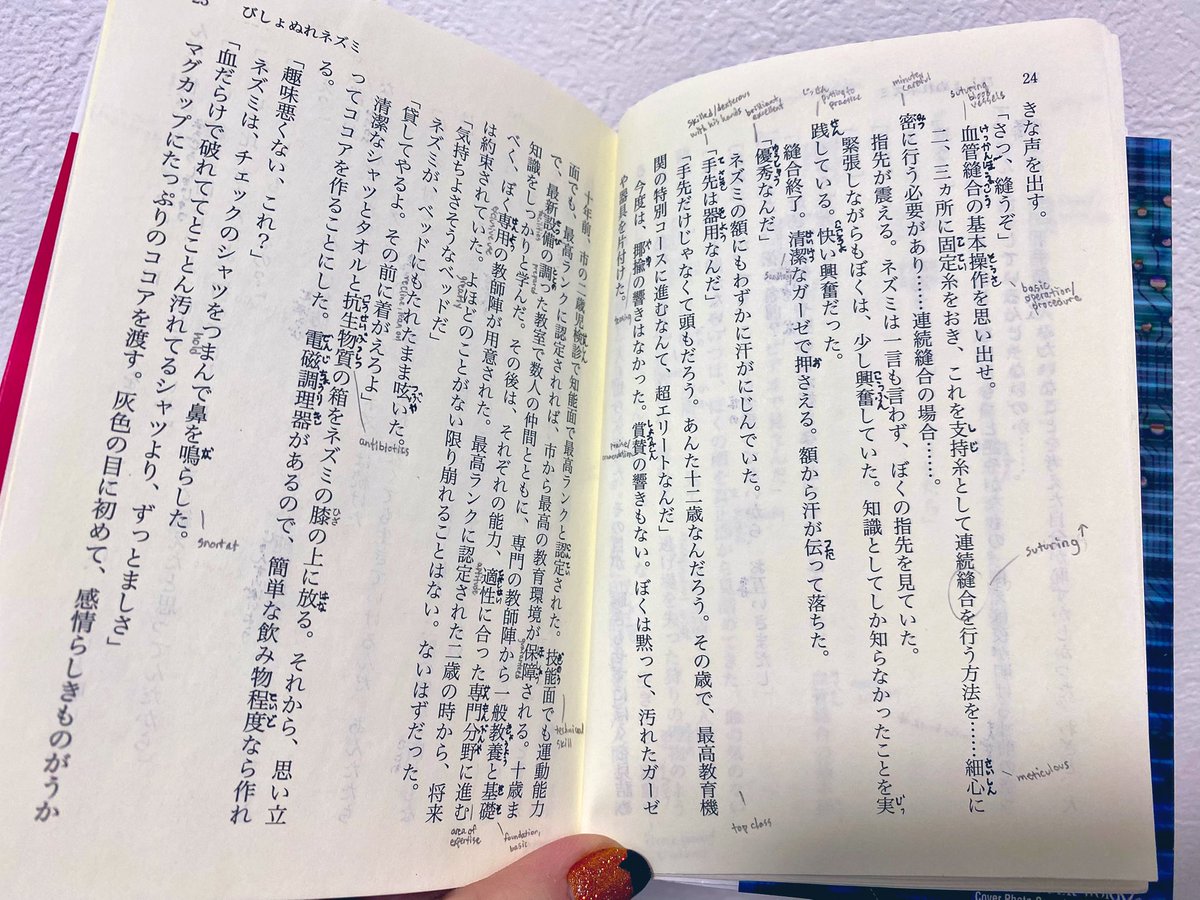 24
きな声を出す。
「さっ、縫うぞ」
血管縫合の基本操作を思い出せ。
二、三ヵ所に固定糸をおき、これを支持糸として連続縫合を行う方法を……細心に
密に行う必要があり……連続縫合の場合……。
指先が震える。ネズミは一言も言わず、ぼくの指先を見ていた。
緊張しながらもぼくは、少し興奮していた。知識としてしか知らなかったことを実
践している。快い興奮だった。
縫合終了。清潔なガーゼで押さえる。額から汗が伝って落ちた。
「優秀なんだ」
ネズミの額にもわずかに汗がにじんでいた。
「手先は器用なんだ」
「手先だけじゃなくて頭もだろう。あんた十二歳なんだろう。その歳で、最高教育機
関の特別コースに進むなんて、超エリートなんだ」
今度は、揶揄の響きはなかった。賞賛の響きもない。ぼくは黙って、汚れたガーゼ
や器具を片付けた。
suturing blood vessels
minutely careful
putting to practice
brilliant excellent
skilled/dexterous with his hands
basic operation/procedure
suturing
meticulous
top class
びしょぬれネズミ
十年前、市の二歳児検診で知能面で最高ランクと認定された。技能面でも運動能力
面でも、最高ランクに認定されれば、市から最高の教育環境が保障される。十歳ま
で、最新設備の調った教室で数人の仲間とともに、専門の教師陣から一般教養と基礎
知識をしっかりと学んだ。その後は、それぞれの能力、適性に合った専門分野に進む
べく、ぼく専用の教師陣が用意された。最高ランクに認定された二歳の時から、将来
は約束されていた。よほどのことがない限り崩れることはない。ないはずだった。
「気持ちよさそうなベッドだ」
ネズミが、ベッドにもたれたまま呟いた。
「貸してやるよ。その前に着がえろよ」
清潔なシャツとタオルと抗生物質の箱をネズミの膝の上に放る。それから、思い立
ってココアを作ることにした。電磁調理器があるので、簡単な飲み物程度なら作れ
る。
「趣味悪くない、これ？」
ネズミは、チェックのシャツをつまんで鼻を鳴らした。
「血だらけで破れててとことん汚れてるシャツより、ずっとましさ」
マグカップにたっぷりのココアを渡す。灰色の目に初めて、感情らしきものがうか
technical skill
foundation, basic
area of expertise
antibiotics
snort at